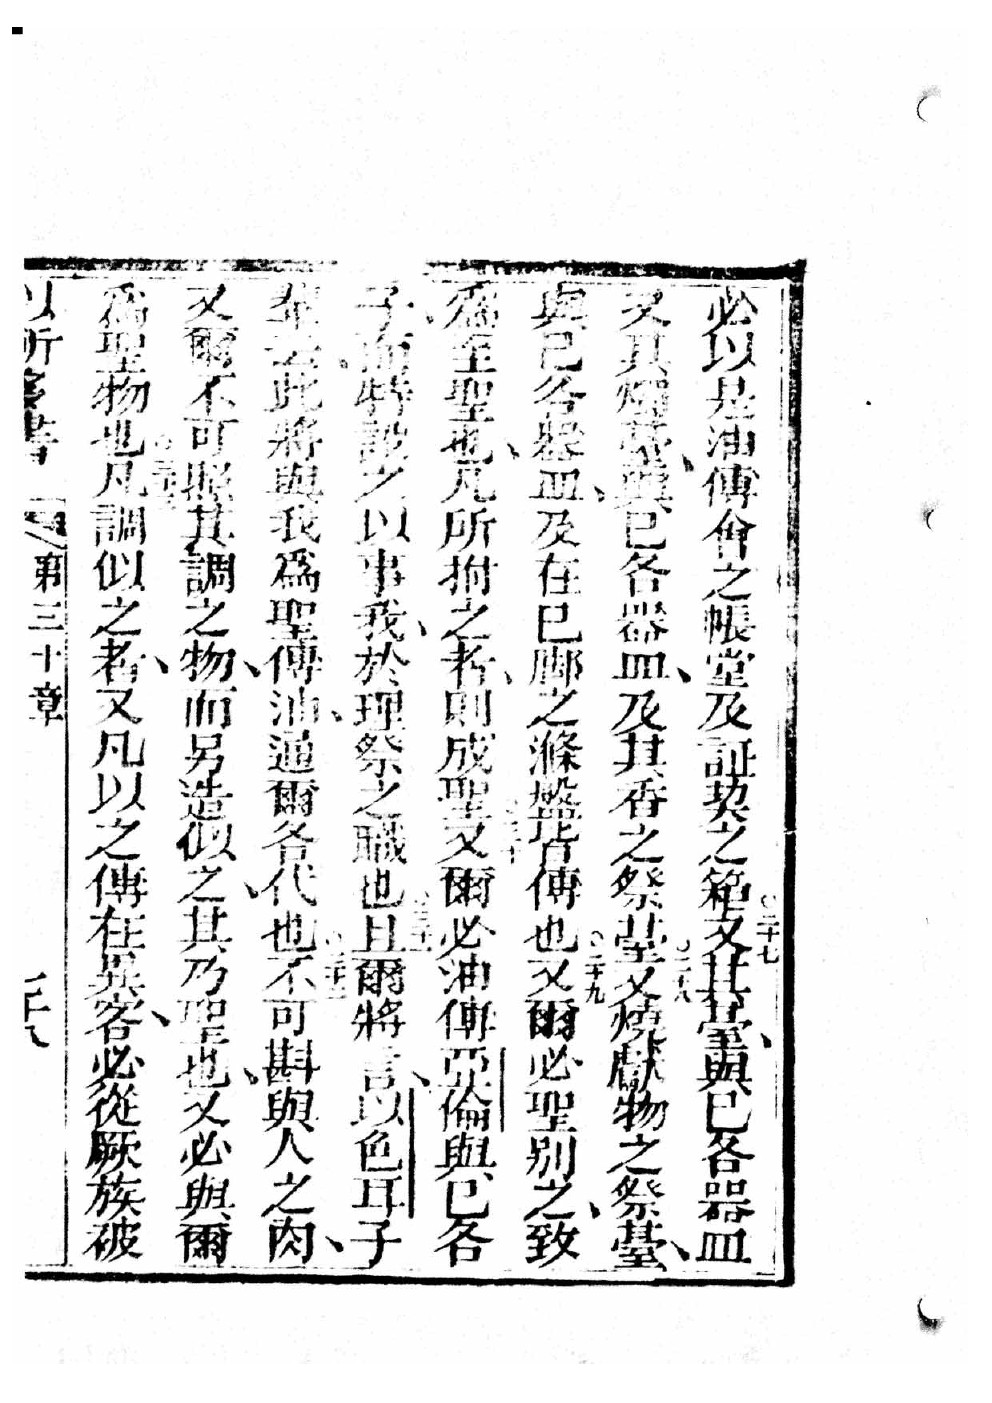 必以是油傅會之帳堂及証契之箱○二十七又其臺與已各器皿
又其燭臺與已各器皿及其香之祭臺○二十八又燒獻物之祭臺
與已各器皿及在已脚之滌盤皆傅也○二十九又爾必聖別之致
爲至聖也凡所拊之者則成聖○三十又爾必油傅亞倫與已各
子而特設之以事我於理祭之職也○三十一且爾將言以色耳子
輩云此將與我爲聖傅油通爾各代也○三十二不可斟與人之肉
又爾不可照其調之物而另造似之其乃聖也又必與爾
爲聖物也○三十三凡調似之者又凡以之傅在異客必從厥族破
以所多書 第三十章